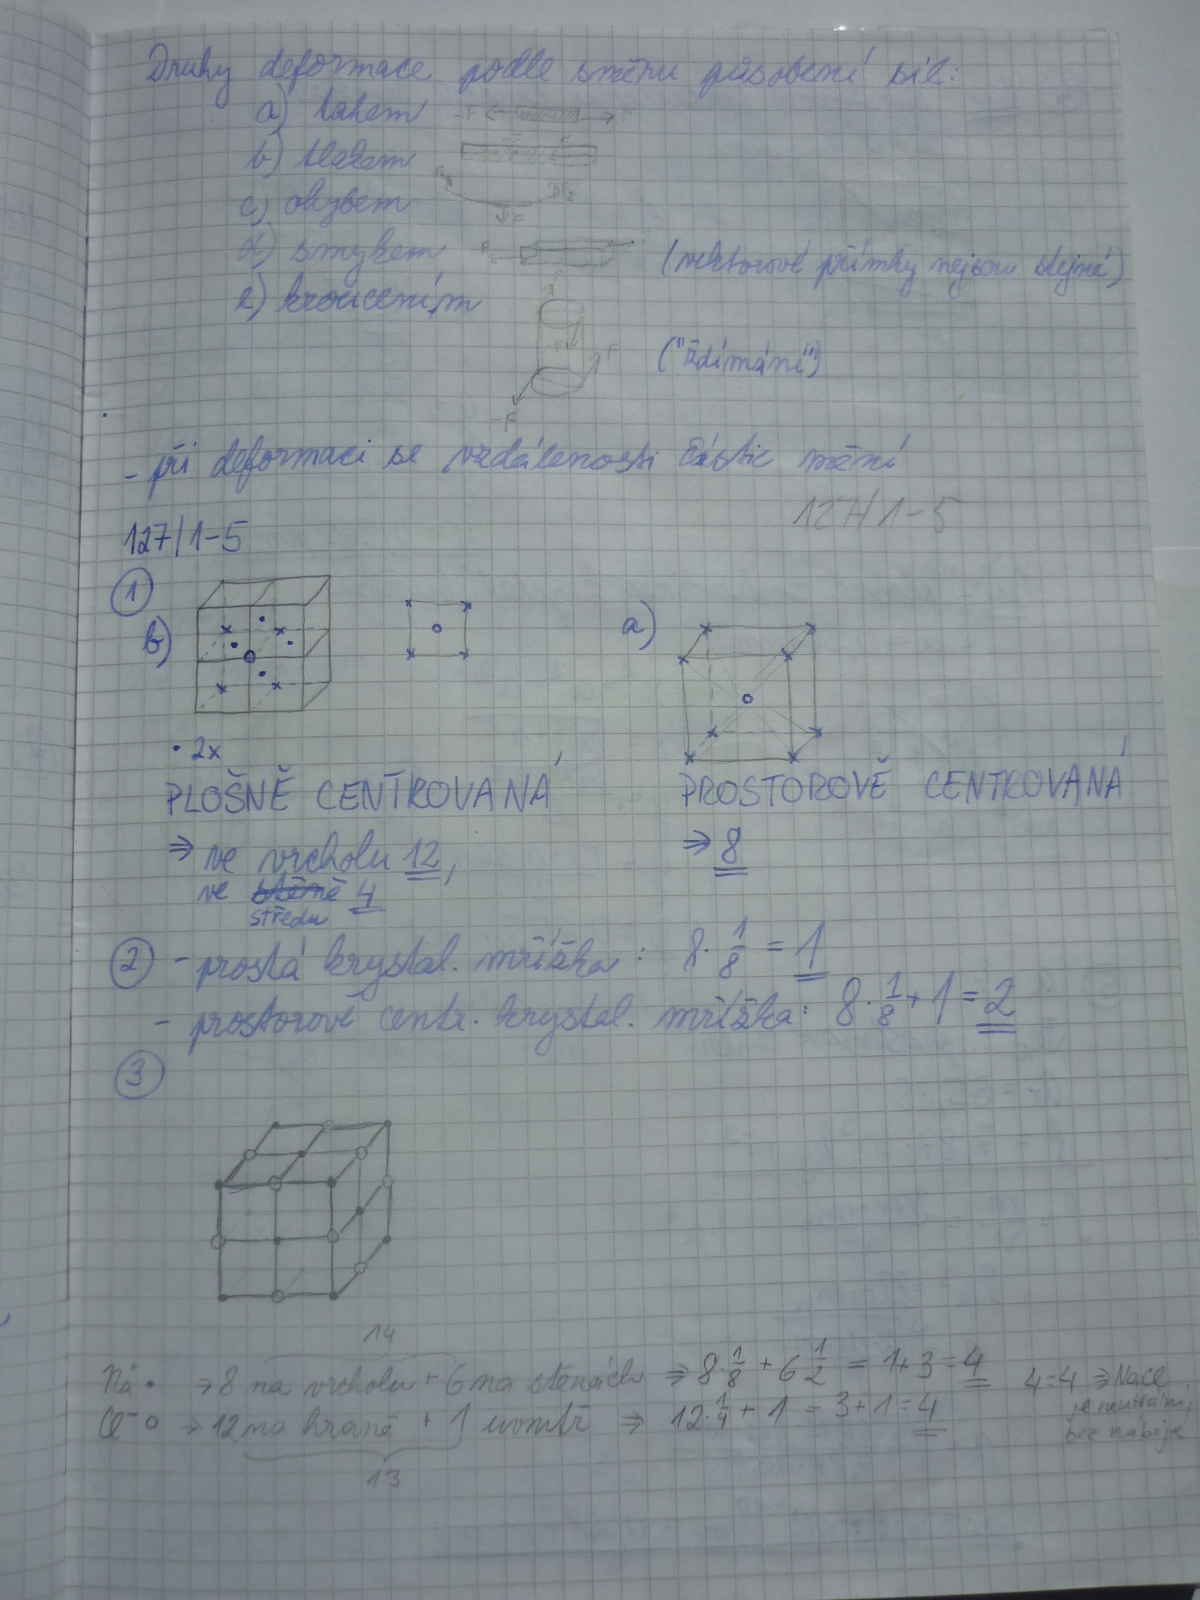 Druhy deformace podle směru působení sil:
a) tahem -F F
b) tlakem
c) ohybem F
d) smykem (vektorové přímky nejsou stejné)
e) kroucením
("ždímání") F
-F
- při deformaci se vzdálenosti částic mění
127/1-5
127/1-5
1
b) a)
• 2x
PLOŠNĚ CENTROVANÁ PROSTOROVĚ CENTROVANÁ
⇒ ve vrcholu 12, ⇒ 8
ve stěně 4
středu
2 - prostá krystal. mřížka: 8·1/8 = 1
- prostorově centr. krystal. mřížka: 8·1/8 + 1 = 2
3
14
Na • → 8 na vrcholu + 6 na stěnách ⇒ 8·1/8 + 6 1/2 = 1+3 = 4 4=4 ⇒ NaCl
Cl⁻ o → 12 na hraně + 1 uvnitř ⇒ 12·1/4 + 1 = 3+1 = 4 je neutrální,
bez náboje
13